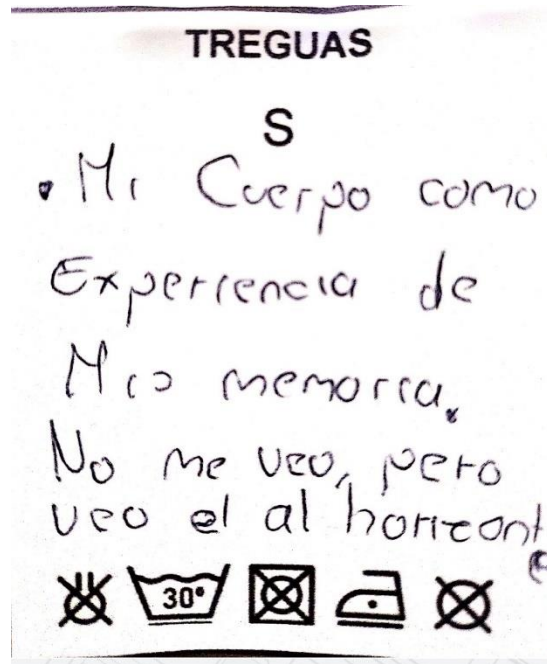 TREGUAS
S
. Mi Cuerpo como
Experiencia de
Mis memoria.
No me veo, pero
veo el al horizonte
30°